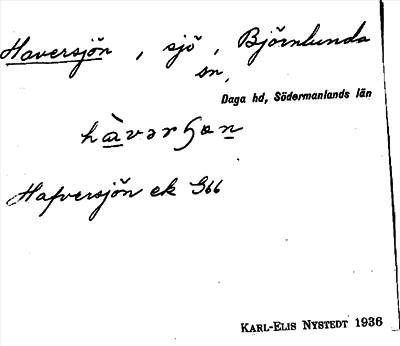 Haversjön, sjö, Björnlunda
sn,
Daga hd, Södermanlands län
hàvərʂɶn
Hafversjön ek G66
KARL-ELIS NYSTEDT 1936